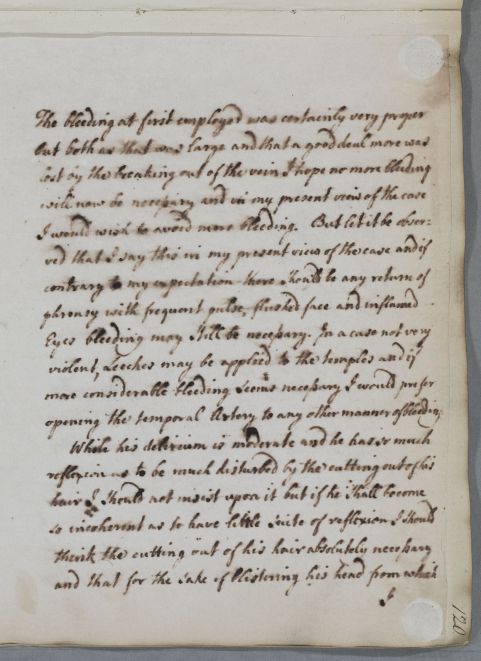 The bleeding at first employed was certainly very proper
but both as that was large and that a good deal more was
lost by the breaking out of the vein I hope no more bleeding
will now be necessary and in my present view of the case
I would wish to avoid more bleeding. But let it be obser-
ved that I say this in my present view of the case and if
contrary to my expectation there should be any return of
phrensy with frequent pulse, flushed face and inflamed
Eyes bleeding may still be necessary. In a case not very
violent, Leeches may be applied to the temples and if
more considerable bleeding seems necessary I would prefer
opening the temporal Artery to any other manner of bleeding.
While his delirium is moderate and he has so much
reflexion as to be much disturbed by the cutting out of his
hair I should not insist upon it but if he shall become
so incoherent as to have little suite of reflexion I should
think the cutting out of his hair absolutely necessary
and that for the sake of blistering his head from which
I
120